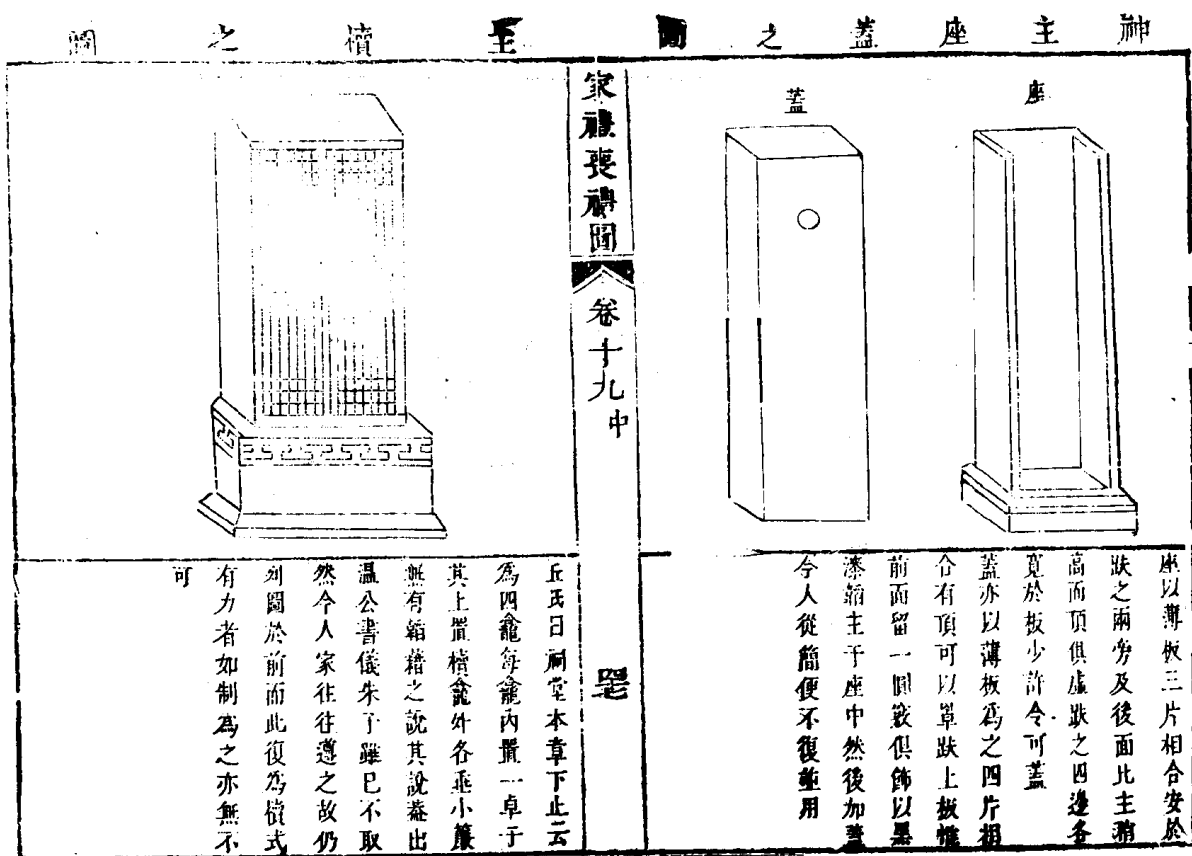 神主座蓋之圖
座
蓋
座以薄板三片相合安於
趺之兩旁及後面比主稍
高而頂俱虛趺之四邊各
寬於板少許令可蓋
蓋亦以薄板爲之四片相
合有頂可以罩趺上板惟
前面留一圓竅俱飾以黑
漆韜主于座中然後加蓋
今人從簡便不復並用
家禮喪禮圖
卷十九中
主櫝之圖
丘氏曰祠堂本章下止云
爲四龕每龕內置一卓于
其上置櫝龕外各垂小簾
無有韜藉之說其說蓋出
溫公書儀朱子雖已不取
然今人家往往遵之故仍
列圖於前而此復爲櫝式
有力者如制爲之亦無不
可